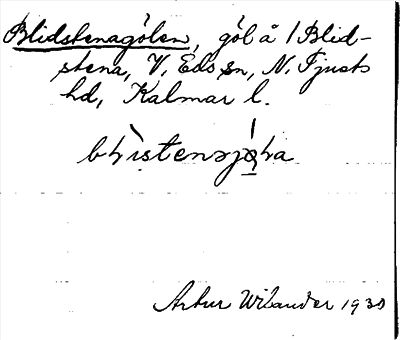 Blidstenagölen, göl å /Blid-
stena, V. Eds sn, N. Tjusts
hd, Kalmar l.
Artur Wilander 1930